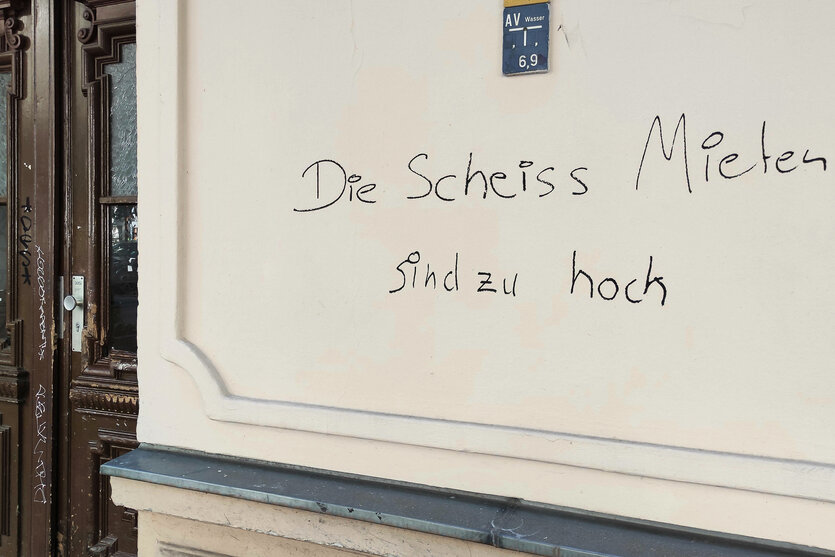 AV Wasser
6,9
Die Scheiss Mieten
sind zu hoch